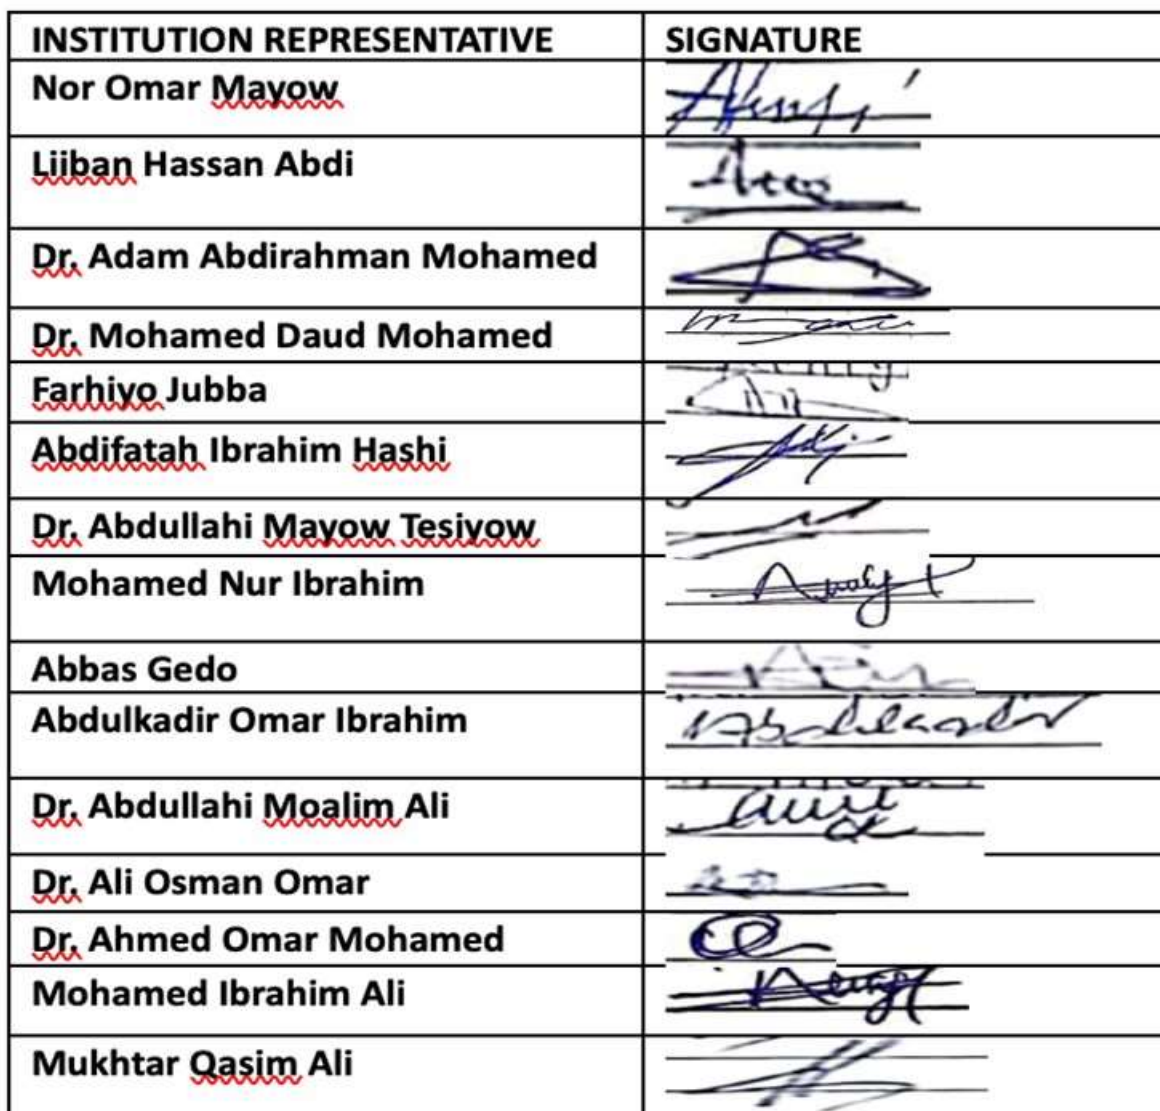 INSTITUTION REPRESENTATIVE SIGNATURE
Nor Omar Mayow
Liiban Hassan Abdi
Dr. Adam Abdirahman Mohamed
Dr. Mohamed Daud Mohamed
Farhiyo Jubba
Abdifatah Ibrahim Hashi
Dr. Abdullahi Mayow Tesiyow
Mohamed Nur Ibrahim
Abbas Gedo
Abdulkadir Omar Ibrahim
Dr. Abdullahi Moalim Ali
Dr. Ali Osman Omar
Dr. Ahmed Omar Mohamed
Mohamed Ibrahim Ali
Mukhtar Qasim Ali